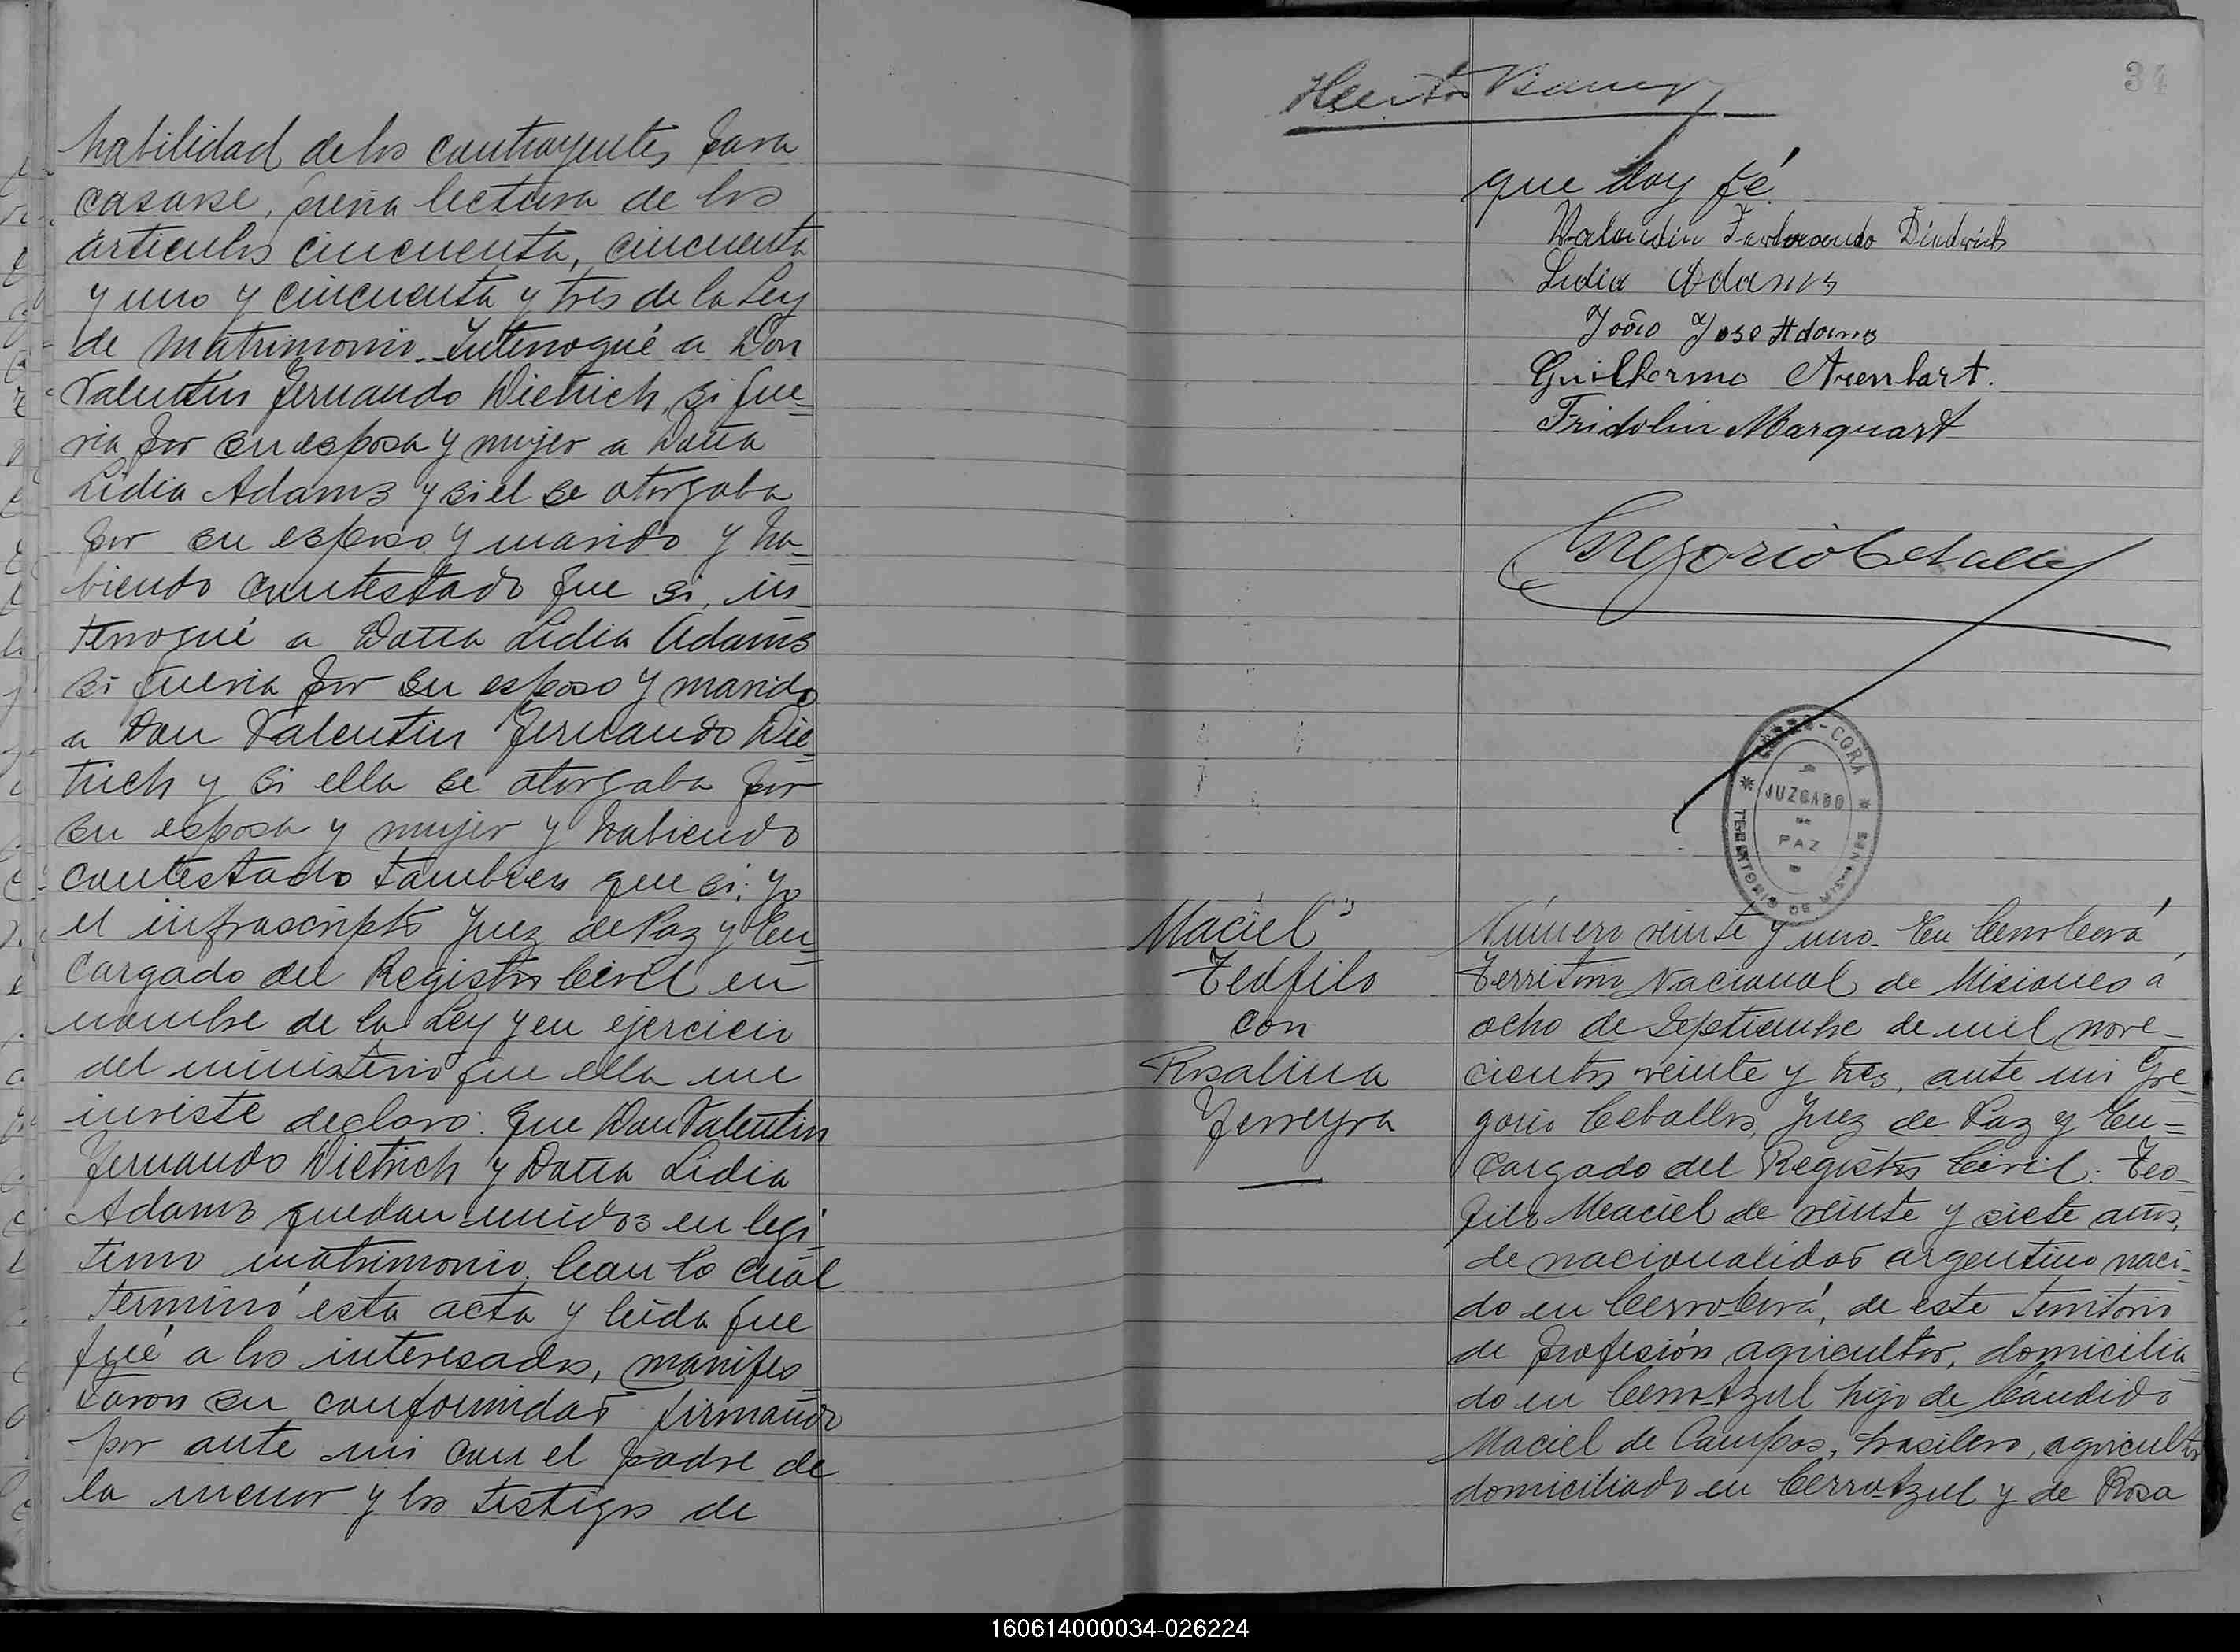 habilidad de los contrayentes para
casarse, previa lectura de los
articulos cincuenta, cincuenta
y uno y cincuenta y tres de la Ley
de Matrimonio. Interrogué a Don
Valentin Fernando Dietrich, si que=
ria por su esposa y mujer a Doña
Lidia Adams y si el se otorgaba
por su esposo y marido y ha=
biendo contestado que si, in=
terrogué a Doña Lidia Adams
si queria por su esposo y marido
a Don Valentin Fernando Die=
trich y si ella se otorgaba por
su esposa y mujer y habiendo
contestado tambien que si: yo
el infrascripto Juez de Paz y En=
cargado del Registro Civil en
nombre de la Ley y en ejercicio
del ministerio que ella me
inviste declaro: que Don Valentin
Fernando Dietrich y Doña Lidia
Adams quedan unidos en legi=
timo matrimonio. Con lo cual
terminó esta acta y leida que
fué a los interesados, manifes=
taron su conformidad firmando
por ante mi con el padre de
la menor y los testigos de
34
que doy fé.
Lidia Adams
João Jose Adams
Guilhermo Arenhart.
Fridolin Marquart
Gregorio Ceballos
CORA
JUZGADO
DE
PAZ
Maciel
Teofilo
con
Rosalina
Ferreyra
Número veinte y uno. En Cerro Corá
Territorio Nacional de Misiones á
ocho de Septiembre de mil nove=
cientos veinte y tres, ante mi Gre=
gorio Ceballos, Juez de Paz y En=
cargado del Registro Civil: Teo=
filo Maciel de veinte y siete años,
de nacionalidad argentino naci=
do en Cerro Corá, de este Territorio
de profesión agricultor, domicilia=
do en Cerro Azul hijo de Cándido
Maciel de Campos, brasilero, agricultor
domiciliado en Cerro Azul y de Rosa
160614000034-026224